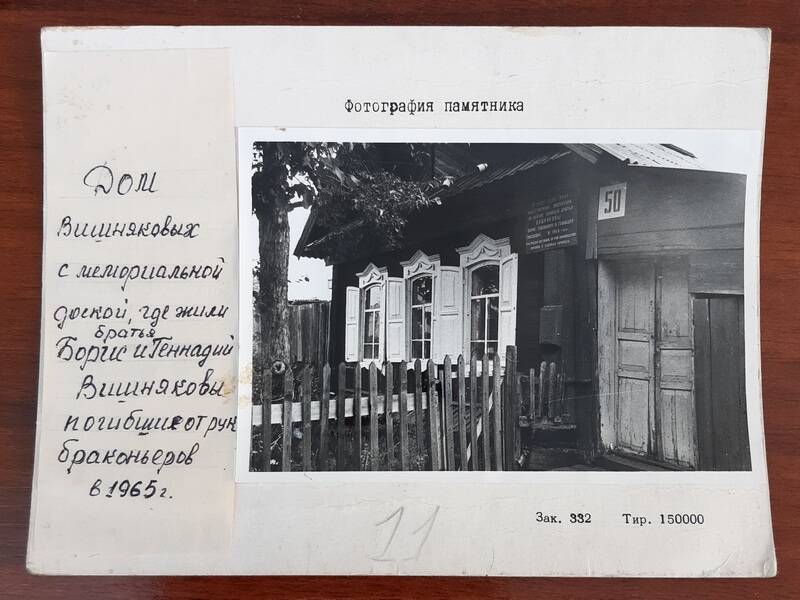 Фотография памятника
Дом
Вишняковых
с мемориальной
доской, где жили
братья
Борис и Геннадий
Вишняковы
погибшие от рук
браконьеров
в 1965г.
50
11
Зак. 332 Тир. 150000